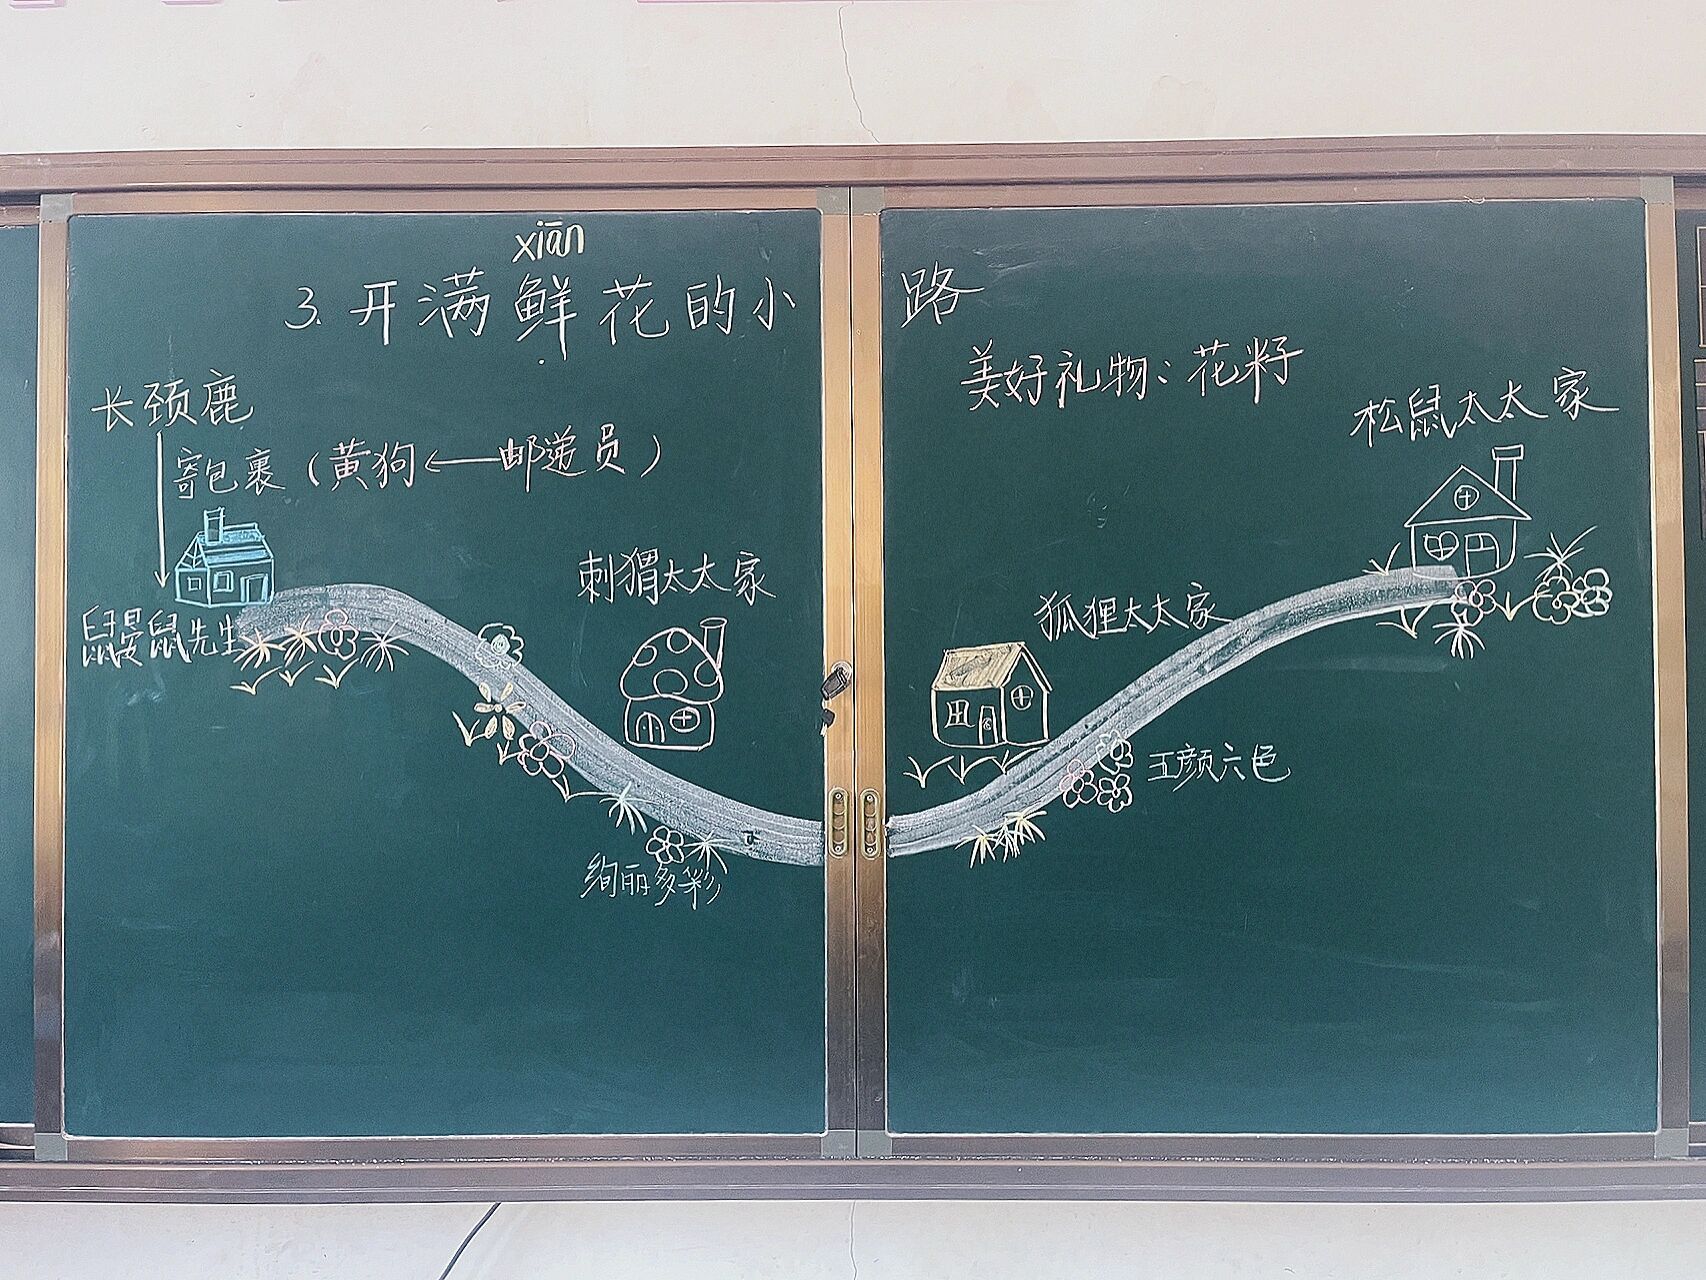 xiān
3.开满鲜花的小路
美好礼物：花籽
长颈鹿
寄包裹（黄狗←邮递员）
鼹鼠先生
刺猬太太家
绚丽多彩
狐狸太太家
五颜六色
松鼠太太家